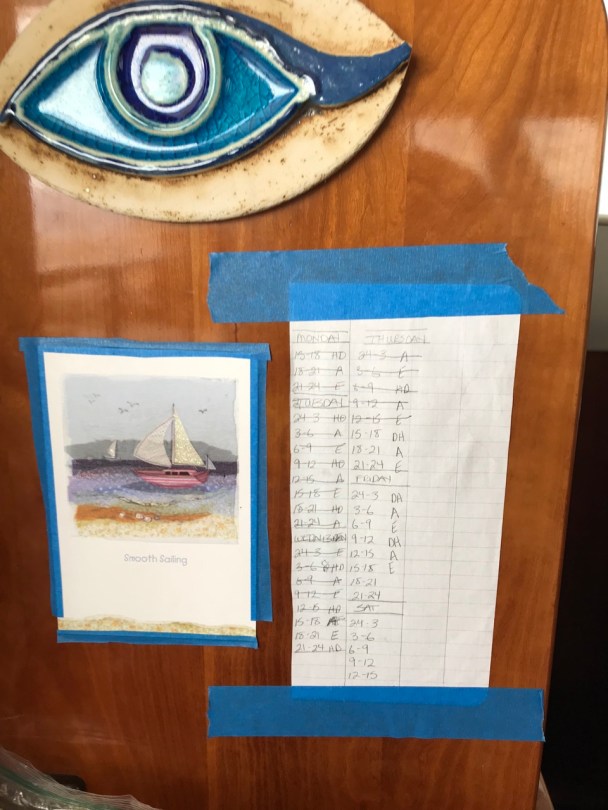 Smooth Sailing
MONDAY
15-18 HD
18-21 A
21-24 E
TUESDAY
24-3 HD
3-6 A
6-9 E
9-12 HD
12-15 A
15-18 E
18-21 HD
21-24 A
WEDNESDAY
24-3 E
3-6 HD
6-9 A
9-12 E
12-15 HD
15-18
18-21 E
21-24 HD
THURSDAY
24-3 A
3-6 E
8-9 HD
9-12 A
12-15 E
15-18 DH
18-21 A
21-24 E
FRIDAY
24-3 DH
3-6 A
6-9 E
9-12 DH
12-15 A
15-18 E
18-21
21-24
SAT
24-3
3-6
6-9
9-12
12-15